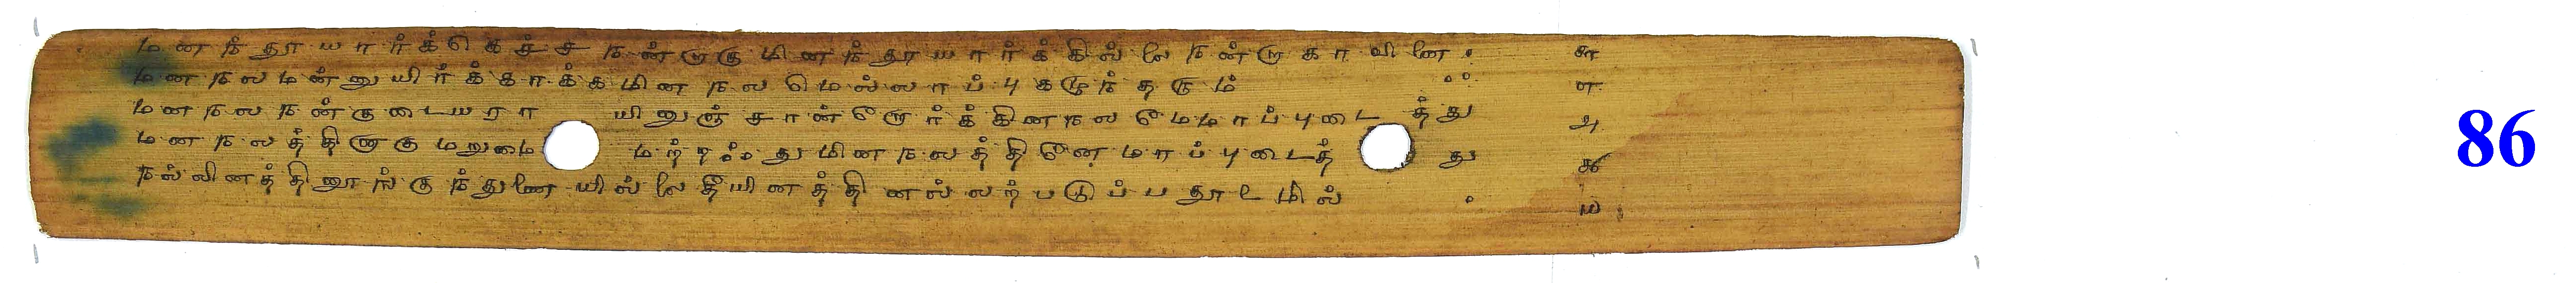 மனந்தூயார்க்கெச்சநன்றாகுமினந்தூயார்க்கில்லைநன்றாகாவினை ௬
மனநலமன்னுயிர்க்காக்கமினநலமெல்லாப்புகழுந்தரும் ௭
மனநலநன்குடையரா யினுஞ்சான்றோர்க்கினநலமேமாப்புடைத்து ௮
மனநலத்தினாகுமறுமை மற்றஃதுமினநலத்தினேமாப்புடைத்து ௯
நல்லினத்தினூங்குந்துணையில்லைதீயினத்தினல்லற்படுப்பதூஉமில் ௰
86